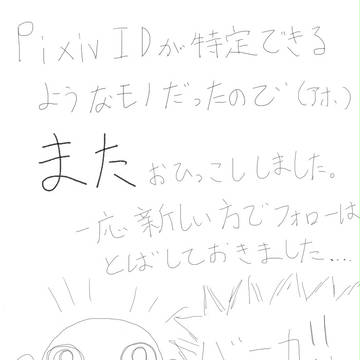 Pixiv IDが特定できる
ようなモノだったので(アホ、)
また おひっこししました。
一応新しい方でフォローは
とばしておきました....
バーカ!!